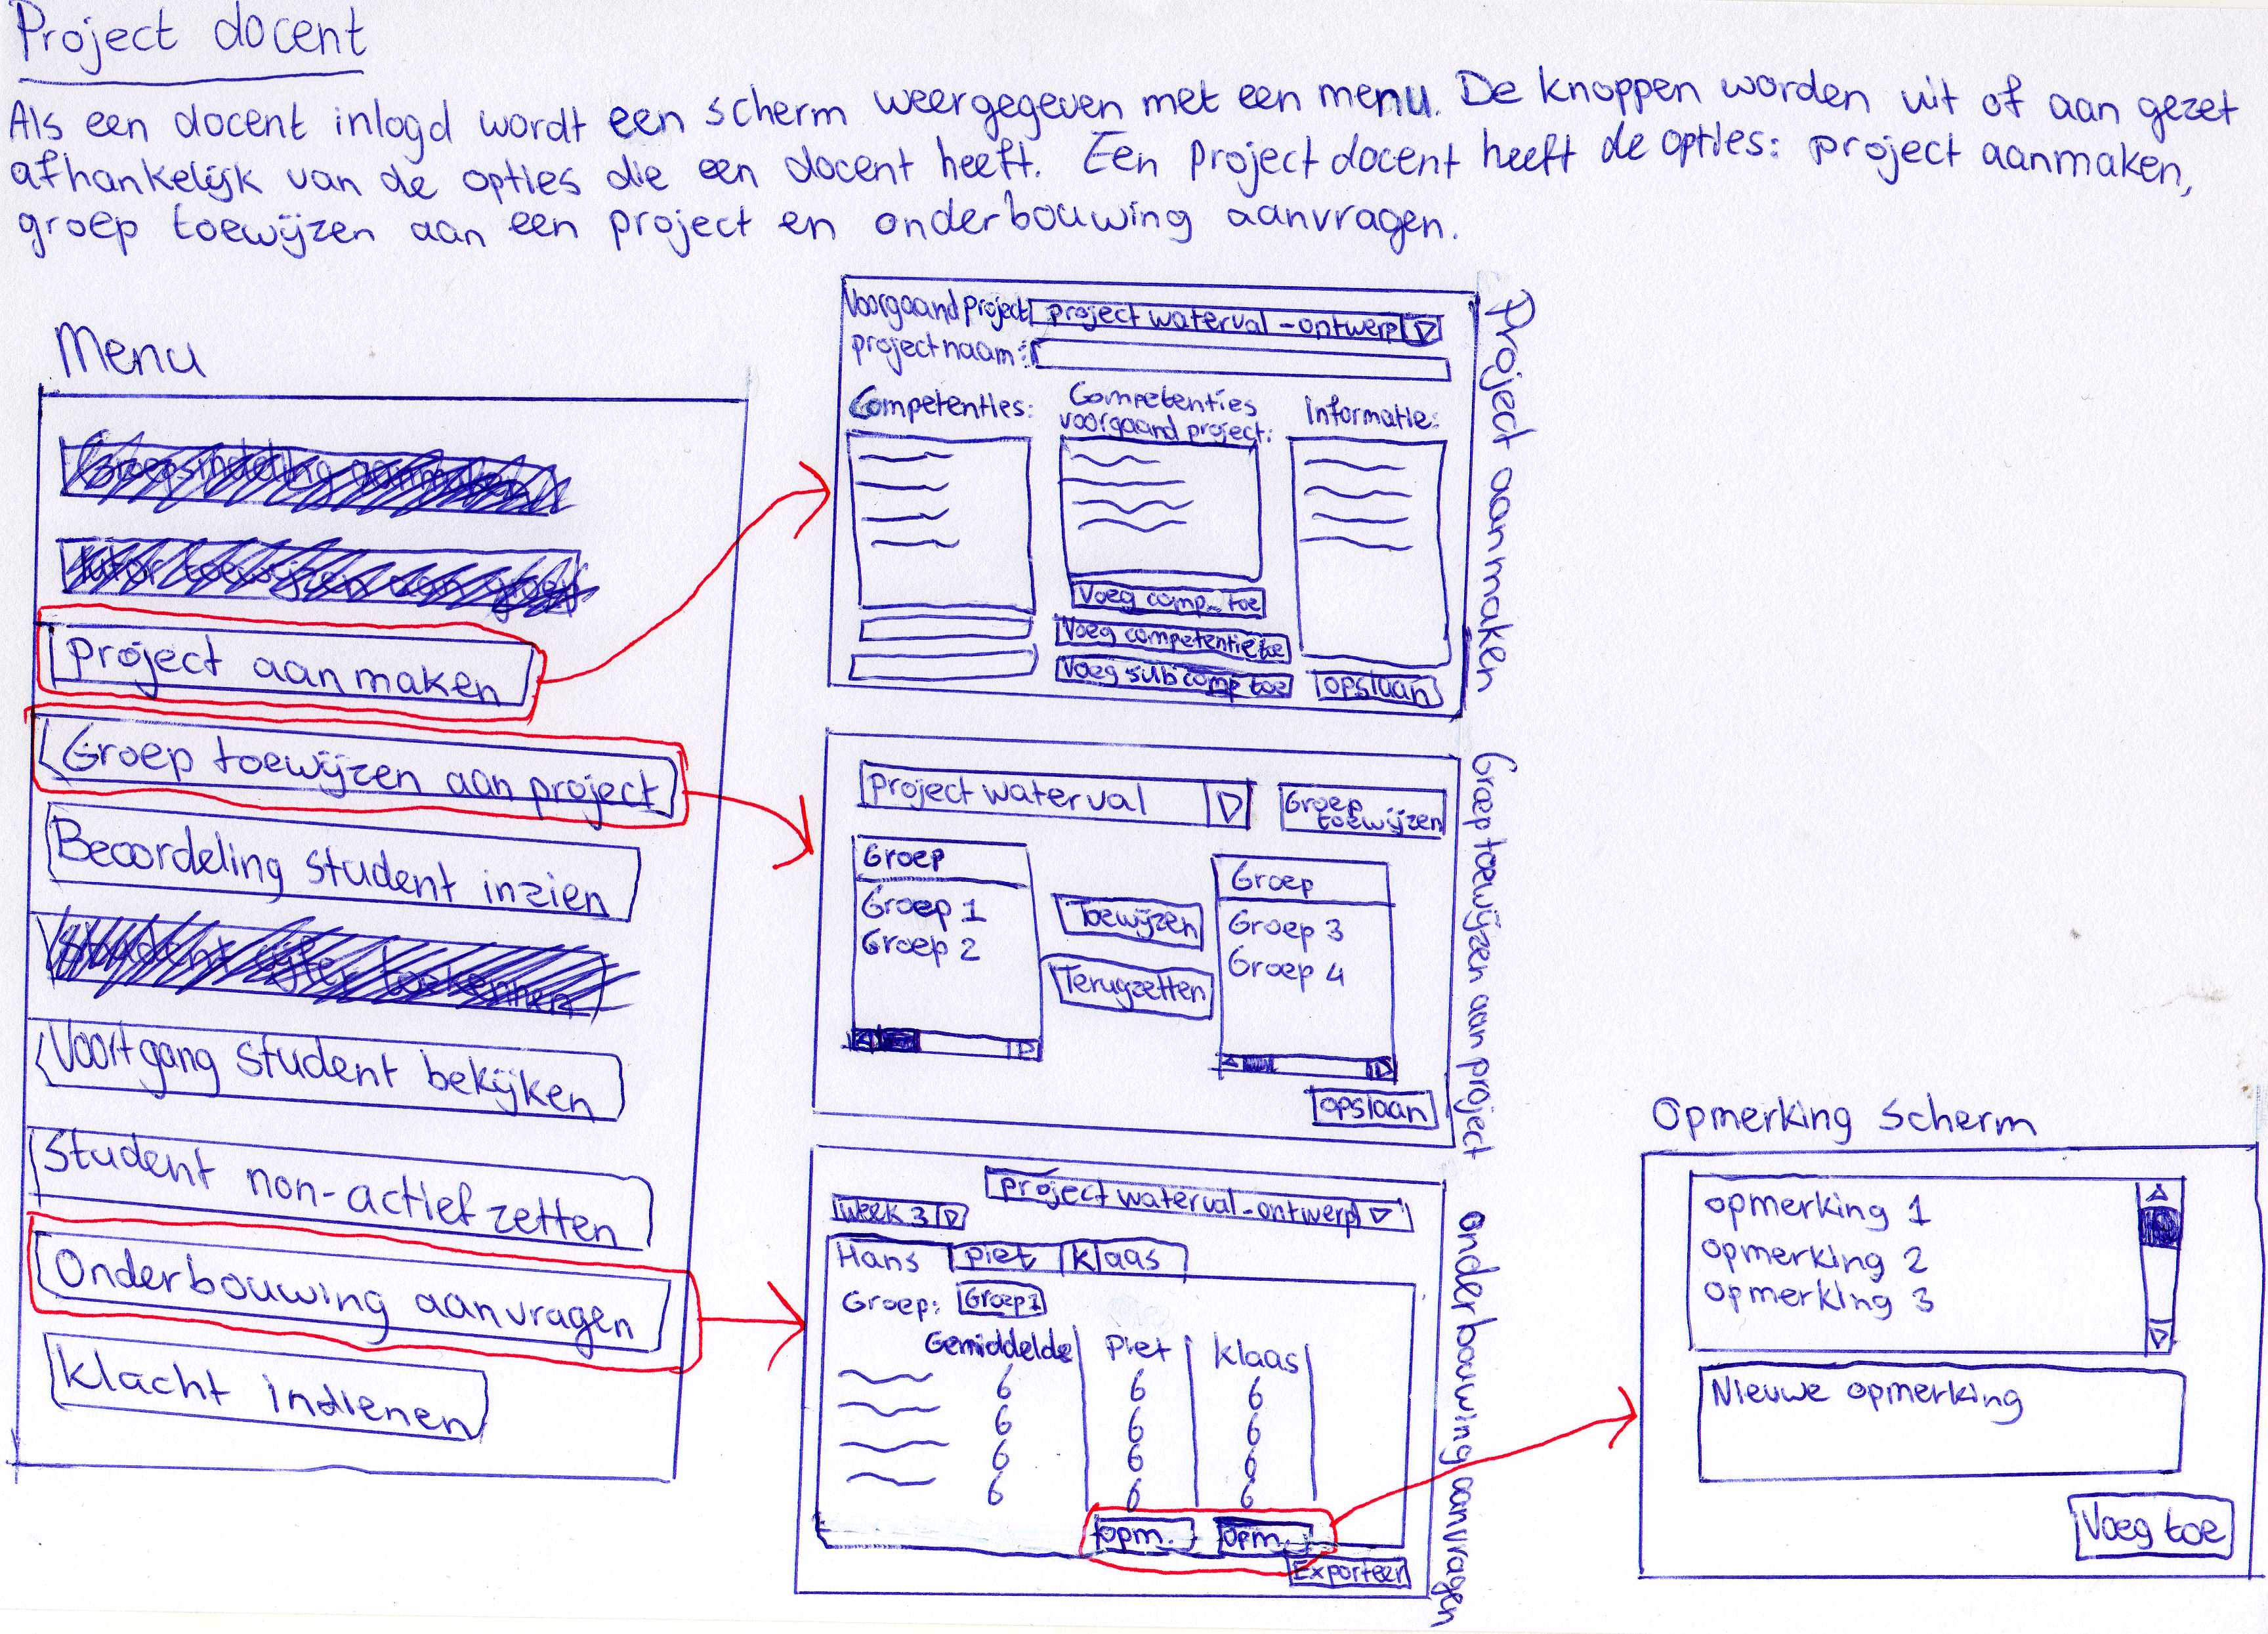 Project docent
Als een docent inlogd wordt een scherm weergegeven met een menu. De knoppen worden uit of aan gezet
afhankelijk van de opties die een docent heeft. Een Project docent heeft de opties: project aanmaken,
groep toewijzen aan een project en onderbouwing aanvragen.
Menu
Groepsindeling aanmaken
Tutor toewijzen aan groep
Project aanmaken
Groep toewijzen aan project
Beoordeling student inzien
Student cijfer toekennen
Voortgang student bekijken
Student non-actief zetten
Onderbouwing aanvragen
Klacht indienen
Project aanmaken
Voorgaand project: project waterval - ontwerp
projectnaam:
Competenties:
Competenties
voorgaand project:
informatie:
Voeg comp. toe
Voeg competentie toe
Voeg subcomp toe
opslaan
Groep toewijzen aan project
Project waterval
Groep
toewijzen
Groep
Groep 1
Groep 2
Toewijzen
Terugzetten
Groep
Groep 3
Groep 4
opslaan
onderbouwing aanvragen
week 3
project waterval-ontwerp
Hans piet klaas
Groep: Groep1
Gemiddelde Piet klaas
6 6 6
6 6 6
6 6 6
6 6 6
opm. opm.
Exporteer
Opmerking scherm
opmerking 1
opmerking 2
opmerking 3
Nieuwe opmerking
Voeg toe